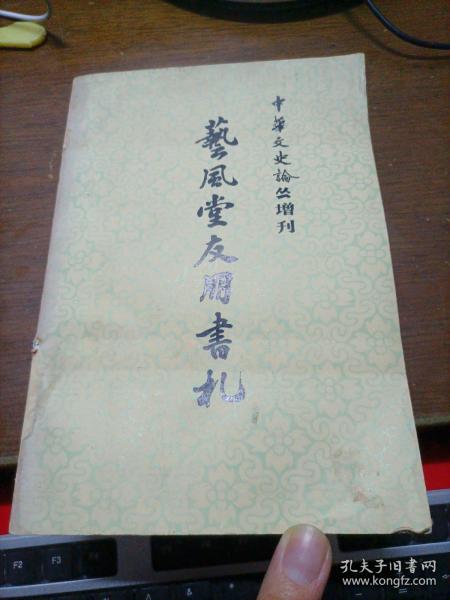 中華文史論丛增刊
藝風堂友朋書札
F2
F3
F4
孔夫子旧书网
www.kongfz.com